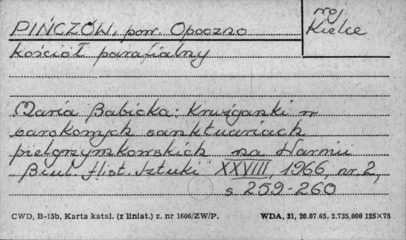 PIŃCZÓW, pow. Opoczno
woj. Kielce
kościół parafialny
Maria Babicka: Krużganki w
barokowych sanktuariach
pielgrzymkowskich na Warmii
Biul. Hist. Sztuki XXVIII, 1966, nr. 2,
s. 259-260
CWD, B-15b, Karta katal. (z liniat.) z. nr 1606/ZW/P. WDA, 31, 20.07.65. 2.735,000 125×75